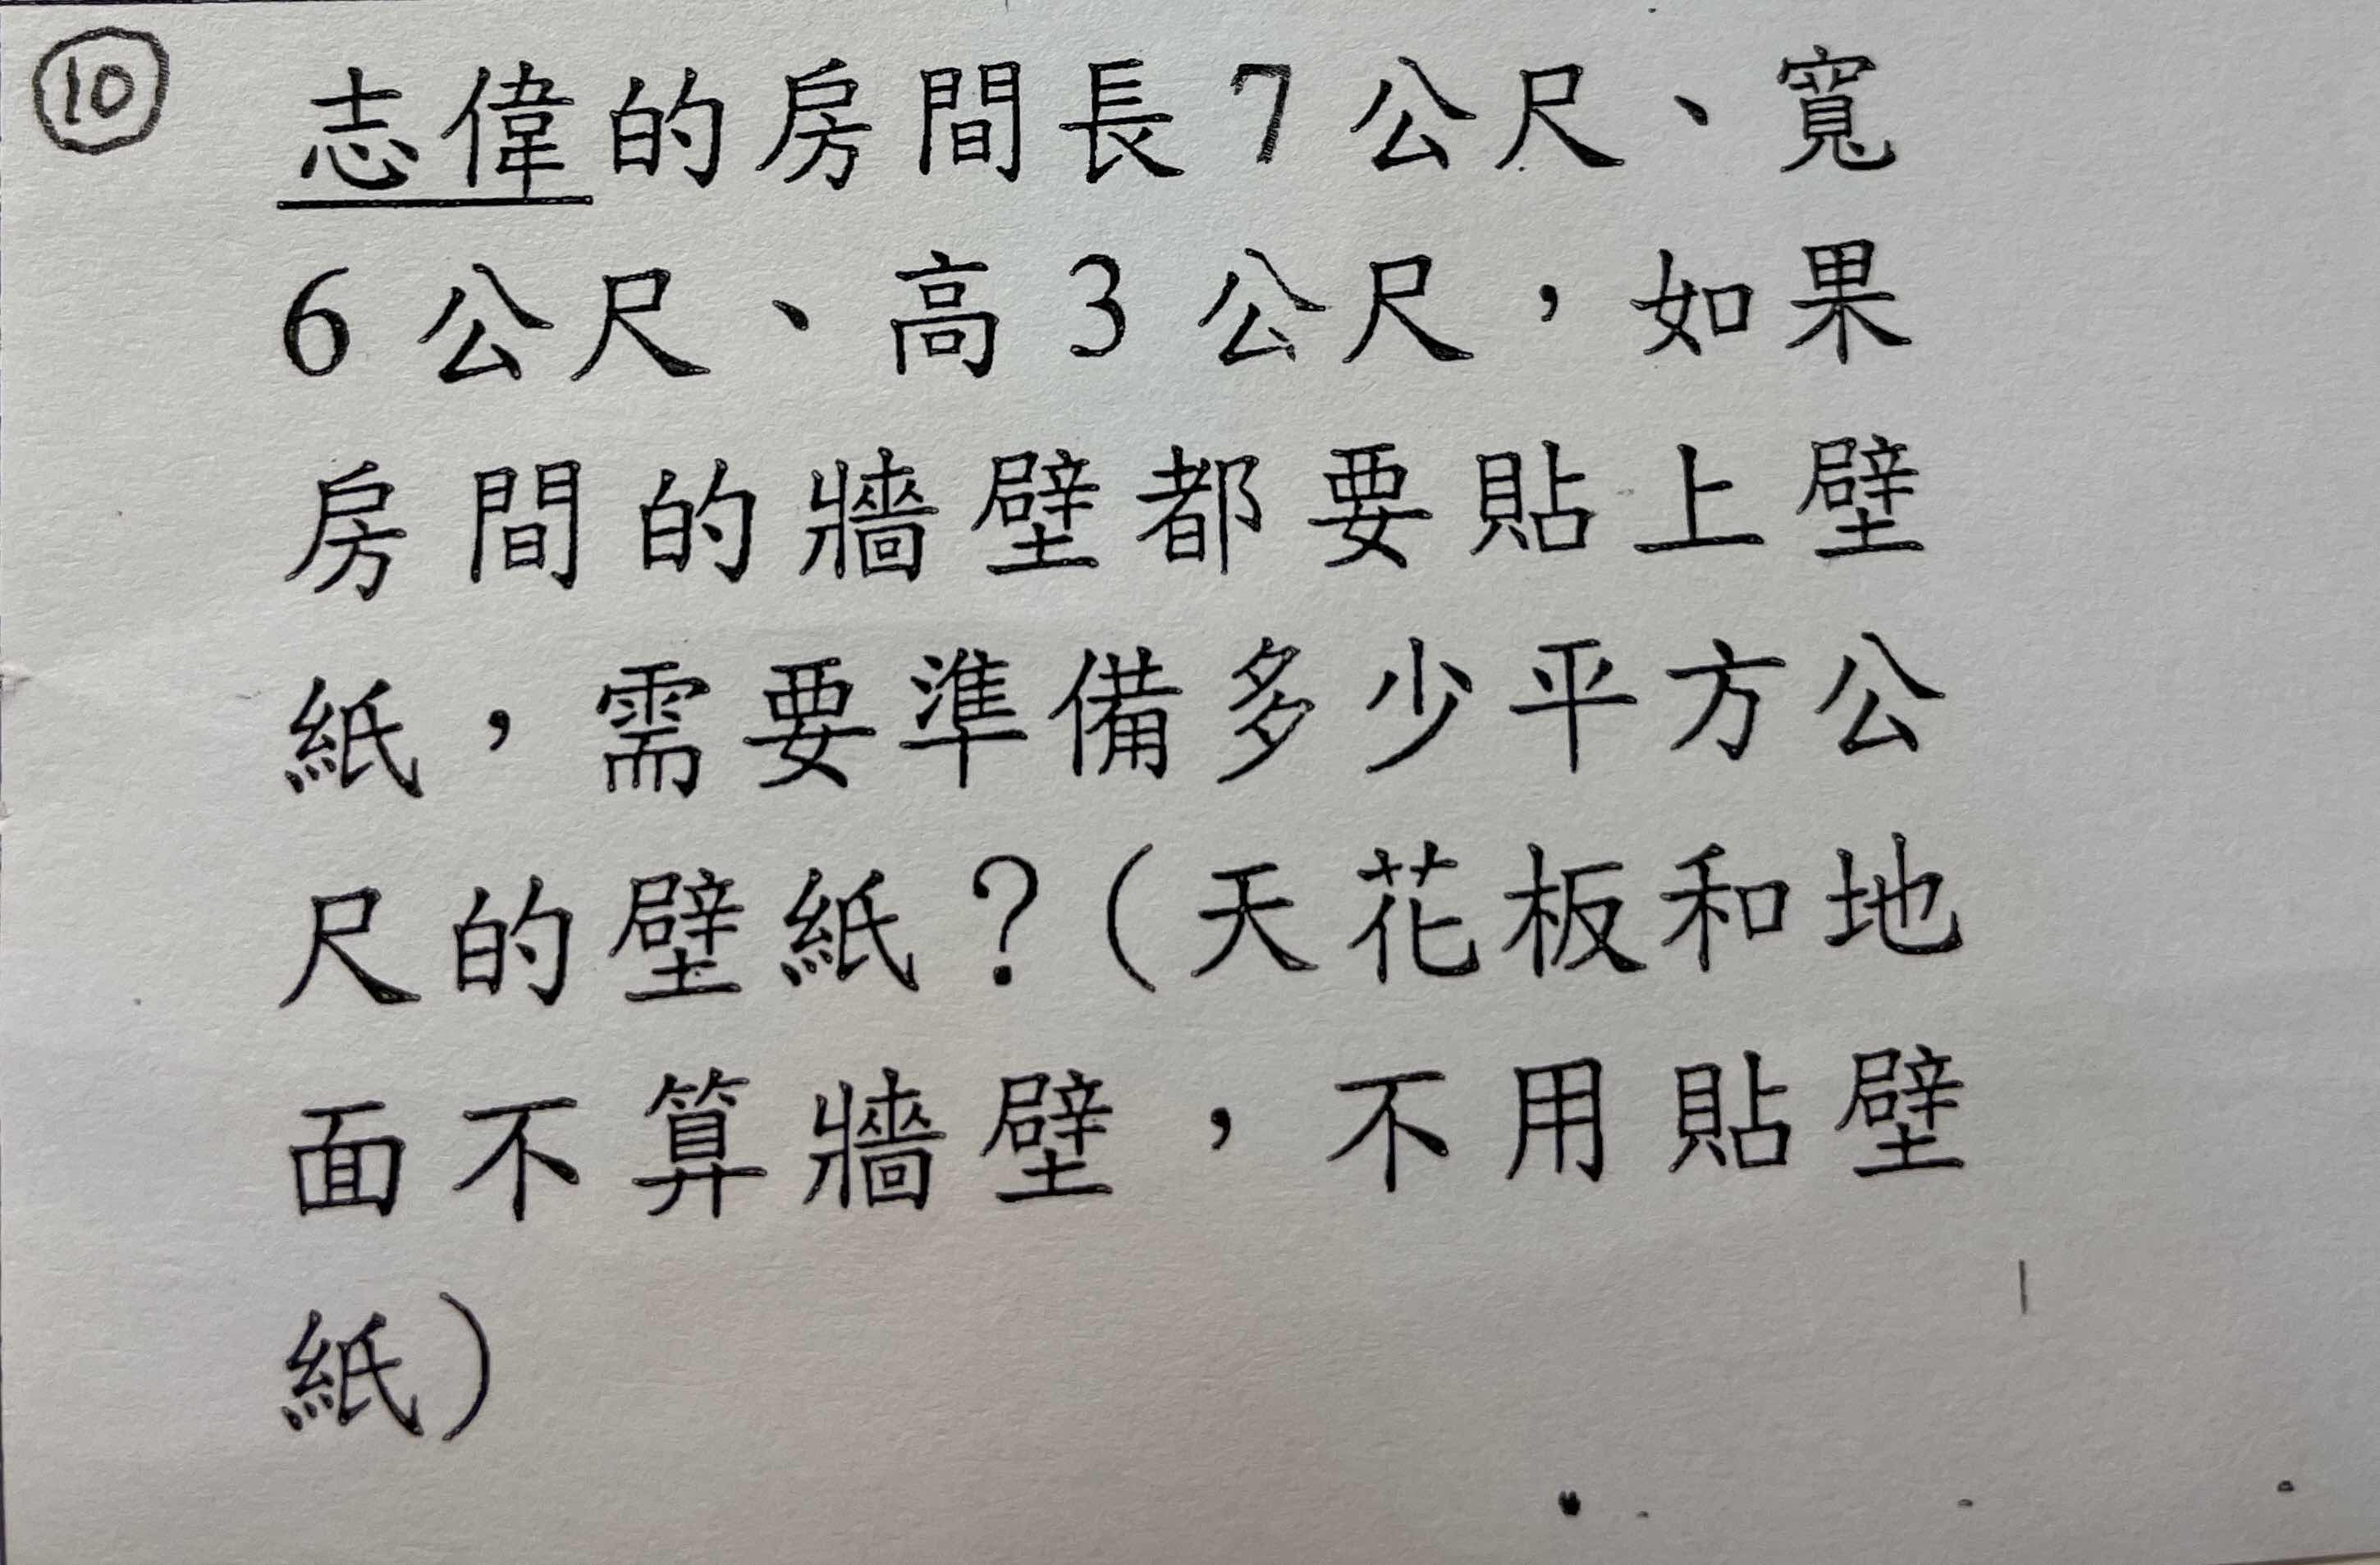 ⑩ 志偉的房間長7公尺、寬
6公尺、高3公尺，如果
房間的牆壁都要貼上壁
紙，需要準備多少平方公
尺的壁紙？(天花板和地
面不算牆壁，不用貼壁
紙)